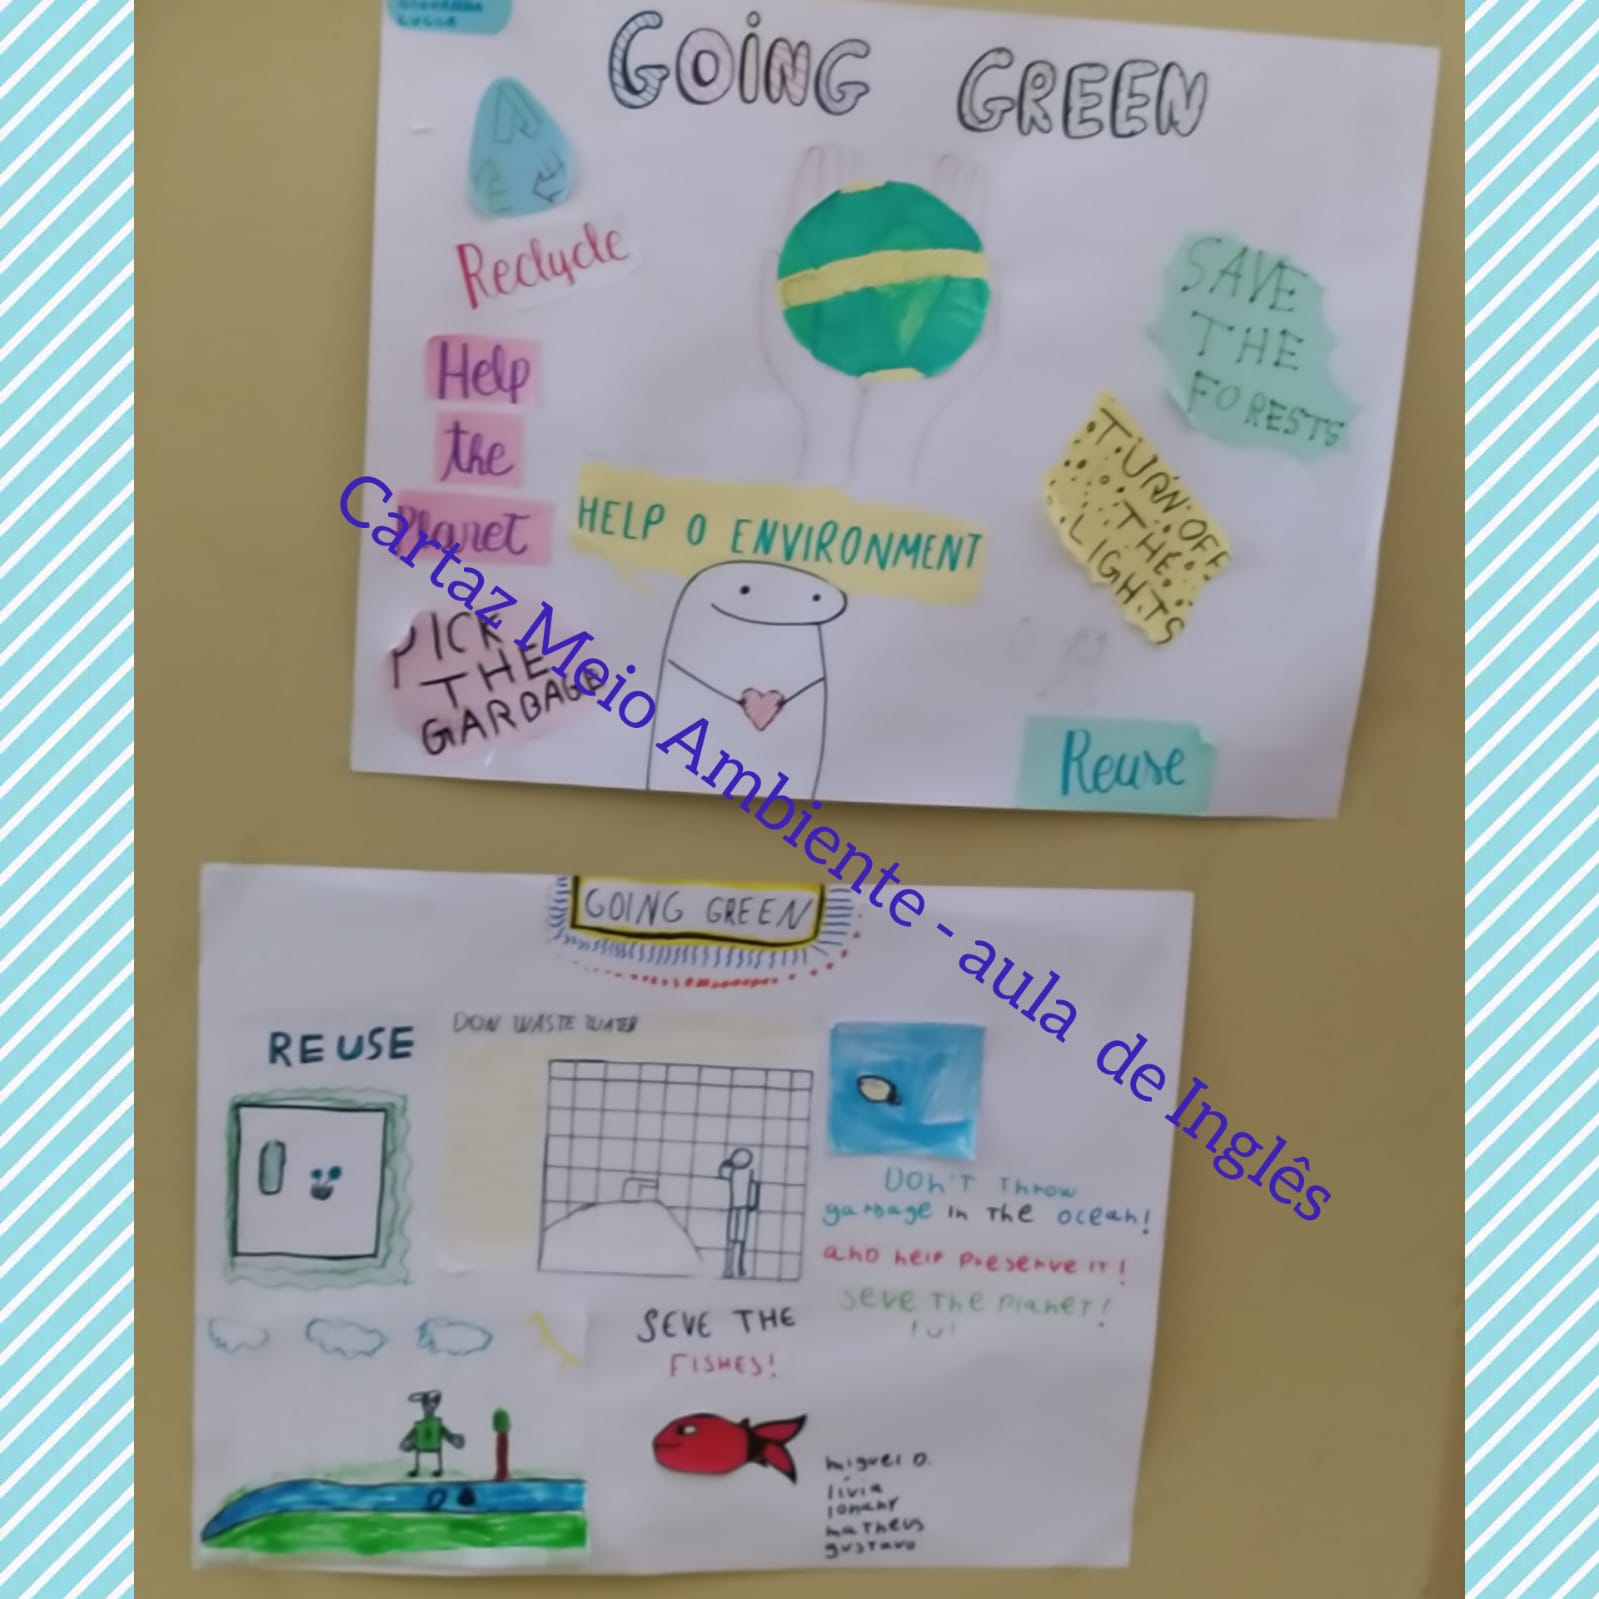 GIOVANNA
LUCCA
GOING GREEN
Reclycle
Help
the
Planet
PICK
THE
GARBAGE
HELP O ENVIRONMENT
SAVE
THE
FORESTS
TURN OFF
THE
LIGHTS
Reuse
Cartaz Meio Ambiente - aula de Inglês
GOING GREEN
REUSE
DON WASTE WATER
DON'T THROW
garbage in The ocean!
and help preserve it!
seve the planet!
SEVE THE
FISHES!
miguel o.
lívia
matheus
gustavo